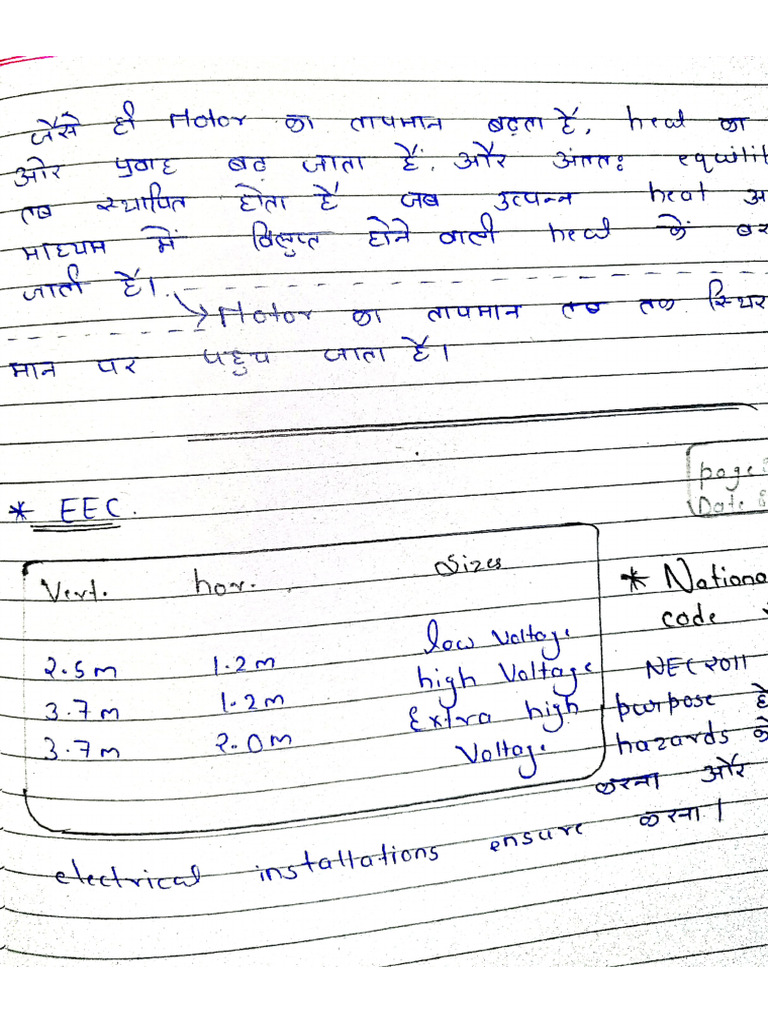 जैसे ही Motor का तापमान बढ़ता है, heat का
ओर प्रवाह बढ़ जाता है, और अंततः equilib
तब स्थापित होता है जब उत्पन्न heat अ
माध्यम में विलुप्त होने वाली heat के बर
जाती है।
Motor का तापमान तब तक स्थिर
मान पर पहुच जाता है।
page
Date
* EEC.
Vert. hor. Sizes
2.5m 1.2m low voltage
3.7m 1.2m high Voltage
3.7m 2.0m Extra high
Voltage
* Nationa
code
NEC 2011
purpose है
hazards को
करना और
electrical installations ensure करना।